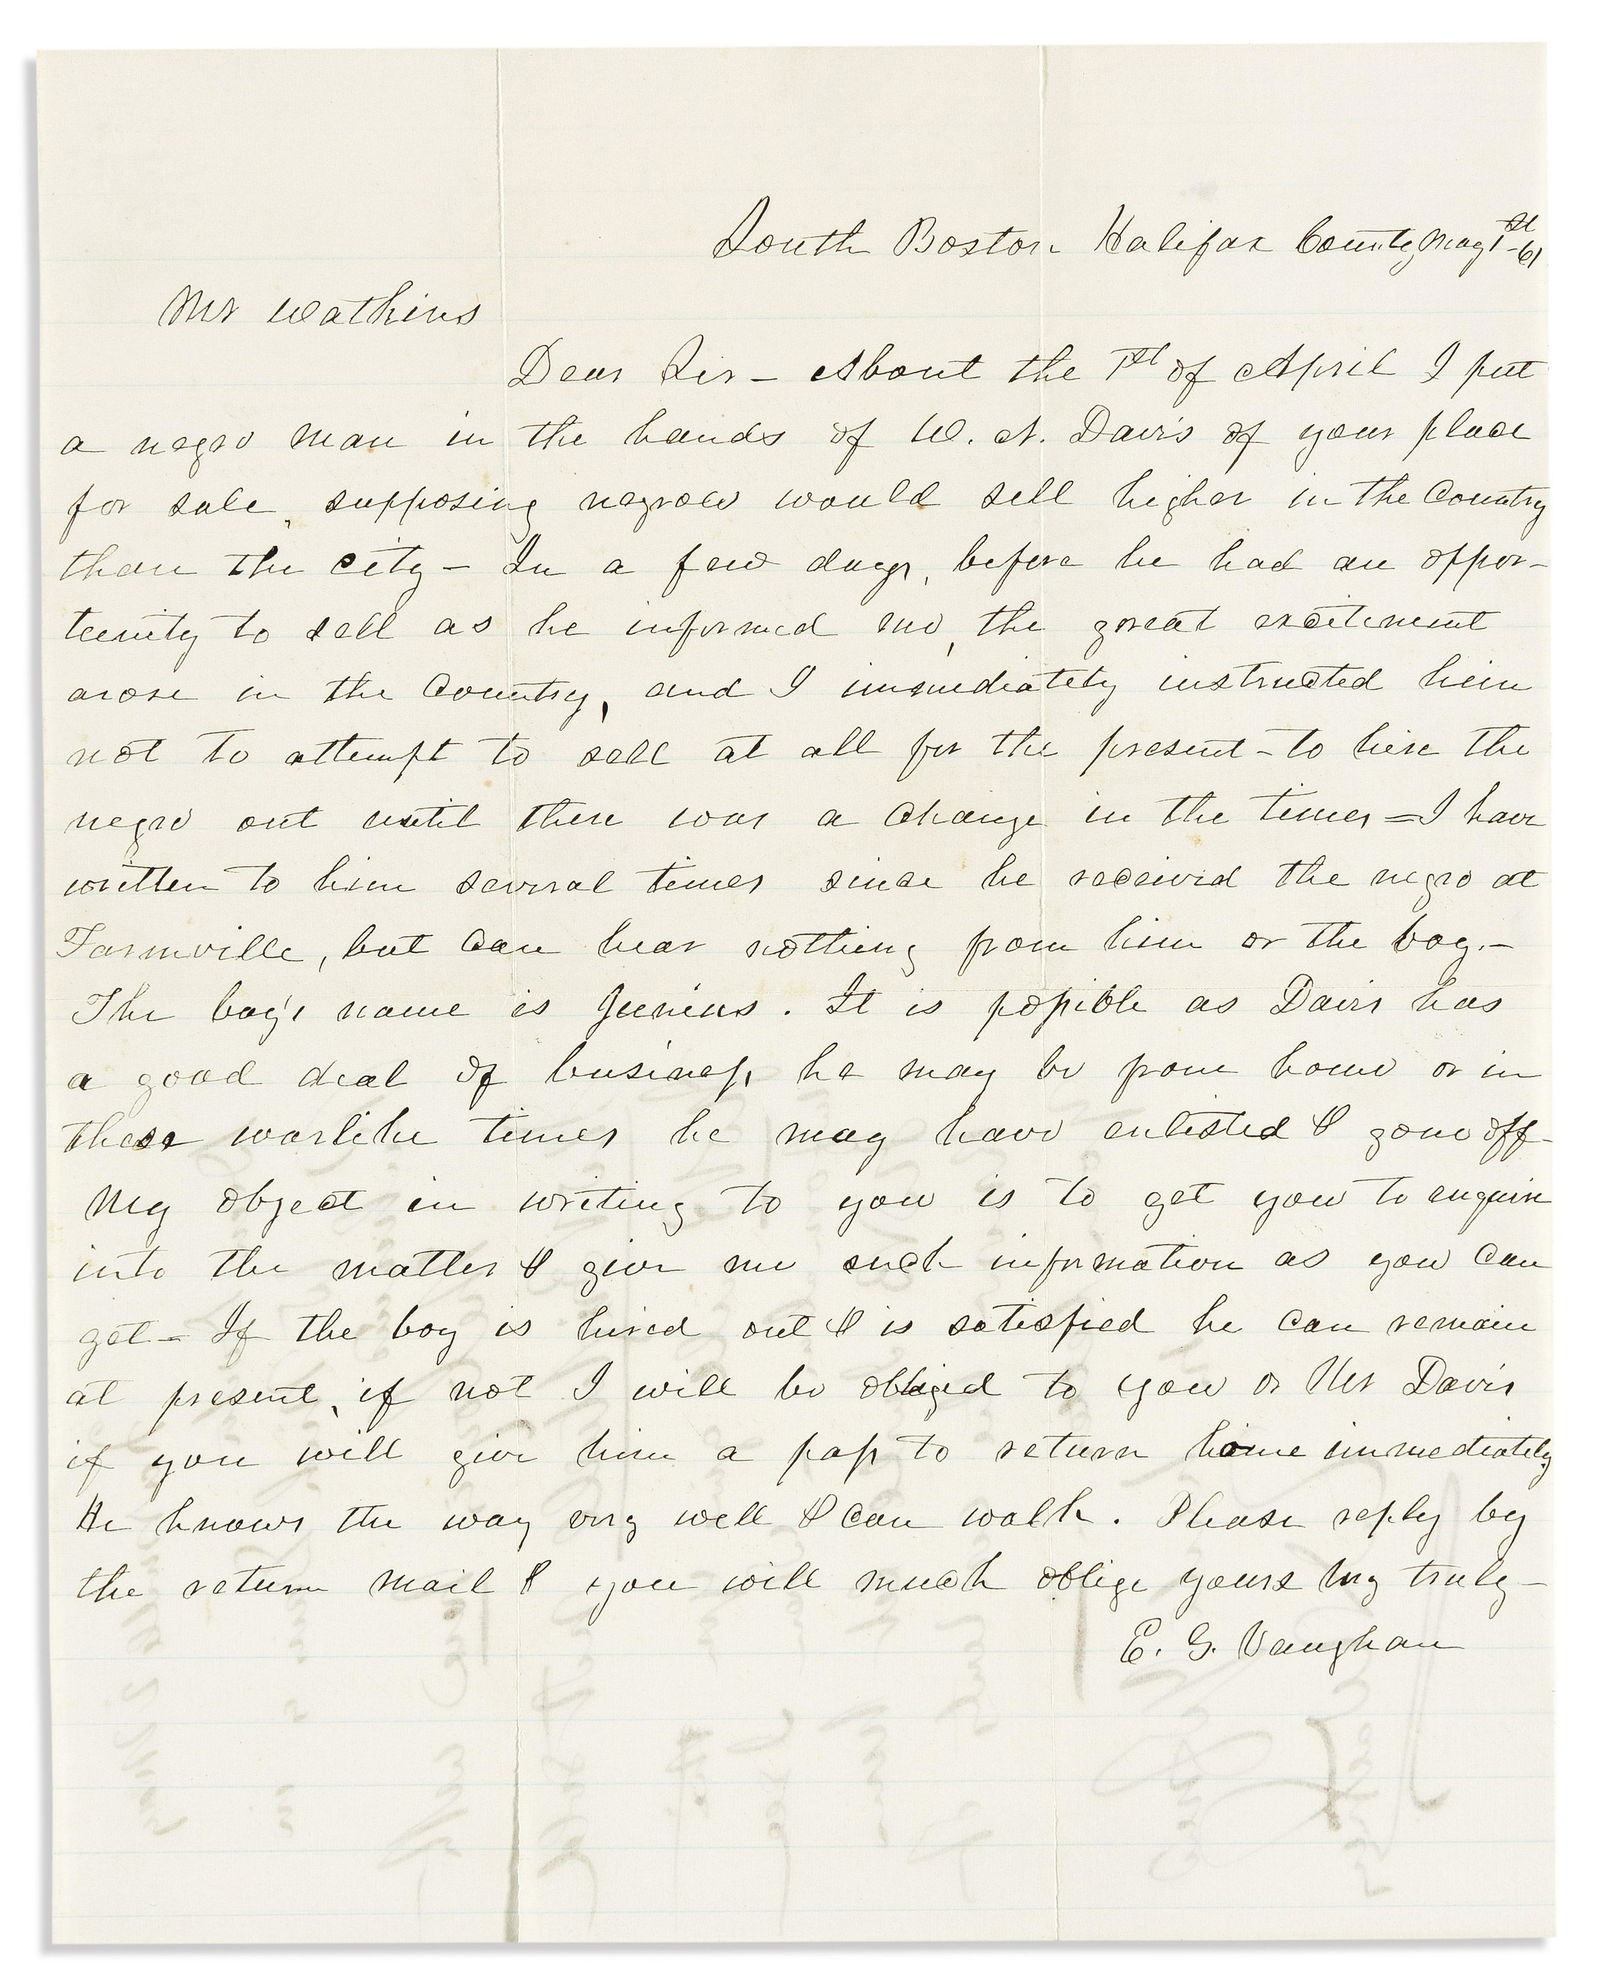 South Boston Halifax County May 1st -61
Mr Watkins
Dear Sir - About the 1st of April I put
a negro man in the hands of W. A. Davis of your place
for sale, supposing negroes would sell higher in the Country
than the city - In a few days, before he had an oppor-
tunity to sell as he informed me, the great excitement
arose in the Country, and I immediately instructed him
not to attempt to sell at all for the present - to hire the
negro out until there was a change in the times = I have
written to him several times since he received the negro at
Farmville, but can hear nothing from him or the boy. -
The boy's name is Junius. It is possible as Davis has
a good deal of business, he may be from home or in
these warlike times he may have enlisted & gone off -
My object in writing to you is to get you to enquire
into the matter & give me such information as you can
get - If the boy is hired out & is satisfied he can remain
at present, if not I will be obliged to you or Mr Davis
if you will give him a pass to return home immediately
He knows the way very well & can walk. Please reply by
the return mail & you will much oblige yours very truly -
E. G. Vaughan